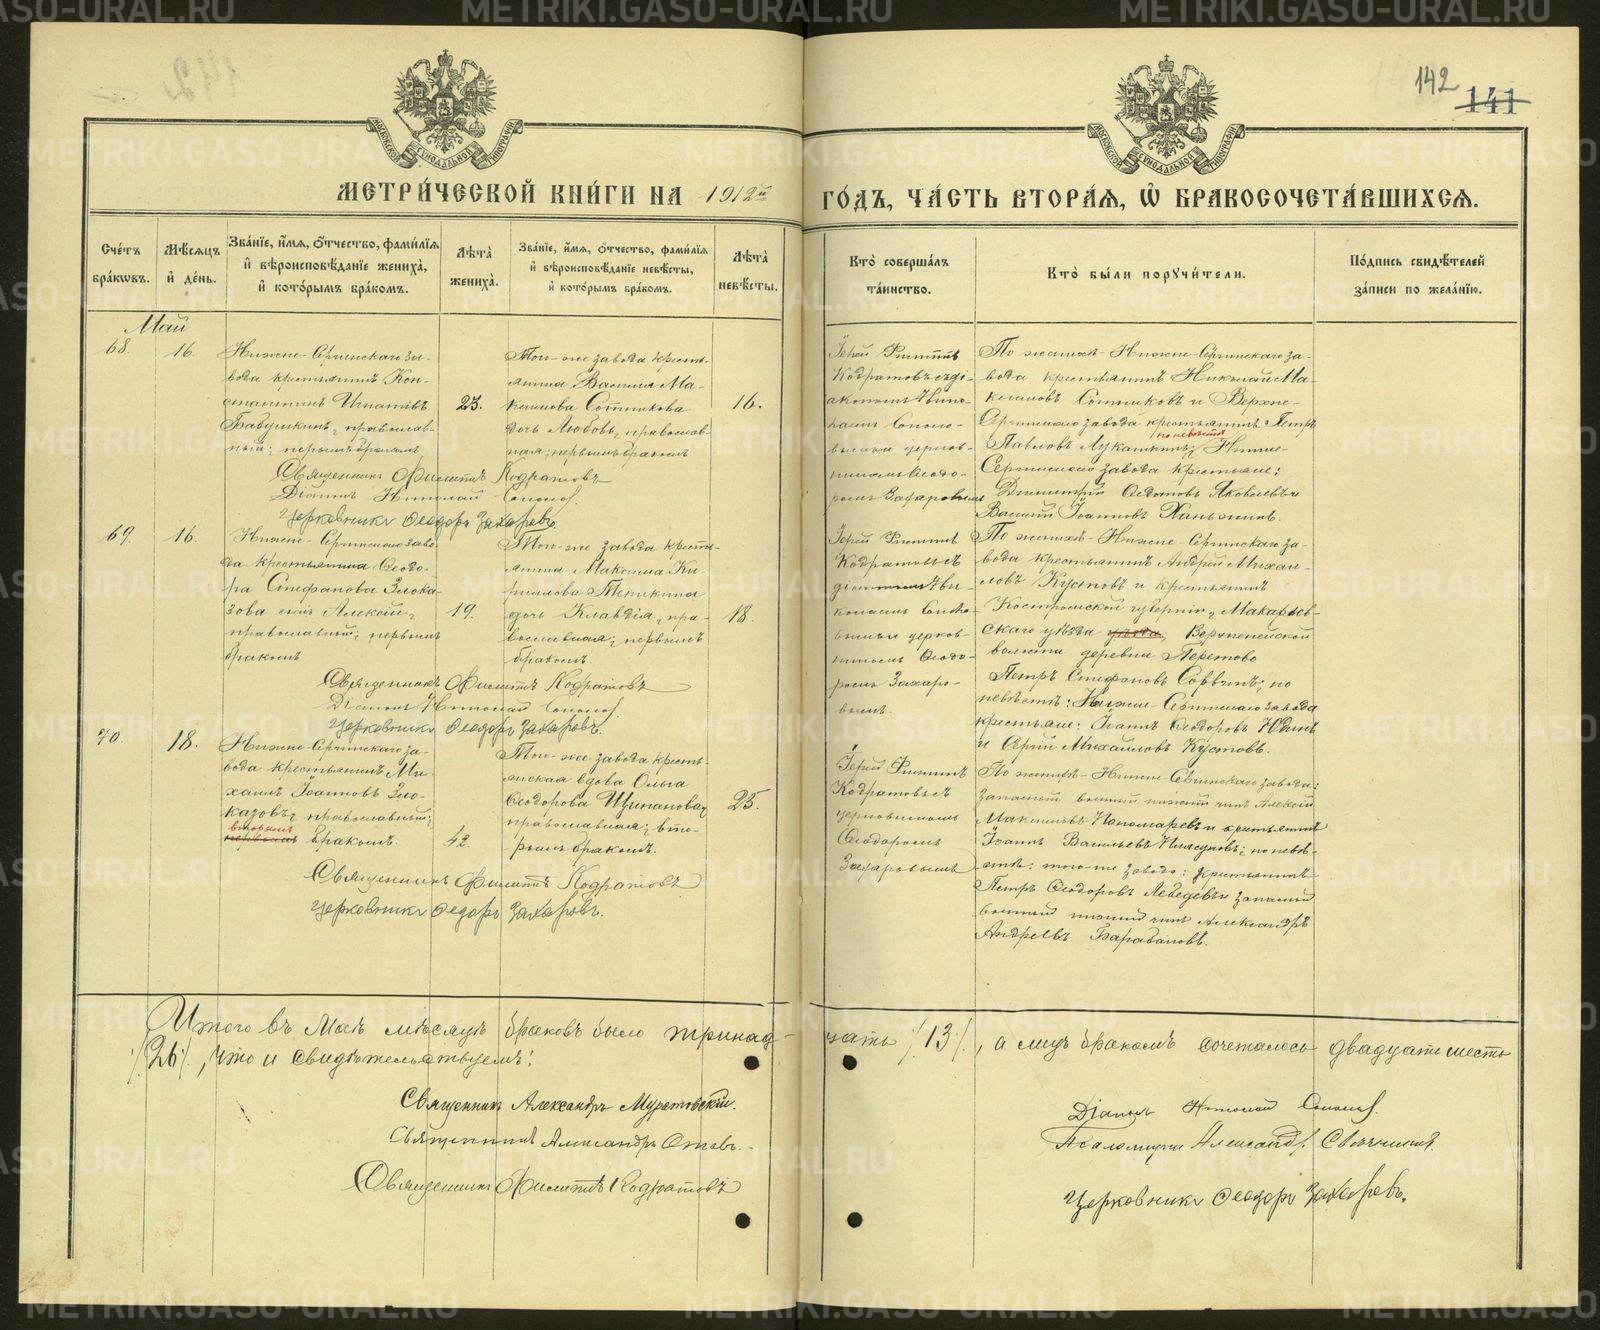 142
141
МЕТРИ́ЧЕСКОЙ КНИ́ГИ НА 1912й ГО́ДЪ, ЧА́СТЬ ВТОРА́Я, Ѽ БРАКОСОЧЕТА́ВШИХСЯ.
МОСКОВСКОЙ СѴНОДАЛЬНОЙ ТИПОГРАФІИ
МОСКОВСКОЙ СѴНОДАЛЬНОЙ ТИПОГРАФІИ
Сче́тъ бра́кѡвъ.
Мѣ́сяцъ и҆ де́нь.
Зва́нїе, и҆́мя, ѻ҆́тчество, фами́лїя и҆ вѣроисповѣ́данїе жениха̀, и҆ кото́рымъ бра́комъ.
Лѣта̀ жениха̀.
Зва́нїе, и҆́мя, ѻ҆́тчество, фами́лїя и҆ вѣроисповѣ́данїе невѣ́сты, и҆ кото́рымъ бра́комъ.
Лѣта̀ невѣ́сты.
Кто̀ соверша́лъ та́инство.
Кто̀ бы́ли порꙋчи́тели.
По́дпись свидѣ́телей за́писи по жела́нїю.
Май
68.
16.
Нижне-Сергинскаго за-
вода крестьянинъ Кон-
стантинъ Игнатіевъ
Бабушкинъ, православ-
ный; первымъ бракомъ
23.
Того-же завода кресть-
янина Василія Ма-
ксимова Сотникова
дочь Любовь, православ-
ная; первымъ бракомъ
16.
Іерей Филиппъ
Кодратовъ съ ді-
акономъ Нико-
лаемъ Соколо-
вымъ и церков-
никомъ Ѳеодо-
ромъ Захаровымъ
По женихѣ- Нижне-Сергинскаго за-
вода крестьянинъ Николай Ма-
ксимовъ Сотниковъ и Верхне-
Сергинскаго завода крестьянинъ Петръ
Павловъ Лукашкинъ; по невѣстѣ Нижне-
Сергинскаго завода крестьяне:
Димитрій Ѳедотовъ Яковлевъ и
Василій Іоанновъ Ханьжинъ.
Священникъ Филиппъ Кодратовъ
Діаконъ Николай Соколов.
Церковникъ Ѳеодоръ Захаровъ
69.
16.
Нижне-Сергинскаго заво-
да крестьянина Ѳеодо-
ра Стефанова Злока-
зова сынъ Алексій,
православный; первымъ
бракомъ
19.
Того-же завода кресть-
янина Максима Ки-
риллова Тетикина
дочь Клавдія, пра-
вославная; первымъ
бракомъ.
18.
Іерей Филиппъ
Кодратовъ съ
Соколо-
вымъ и церков-
никомъ Ѳеодо-
ромъ Захаро-
вымъ.
По женихѣ- Нижне-Сергинскаго за-
вода крестьянинъ Андрей Михаи-
ловъ Кустовъ и крестьянинъ
Костромской губерніи, Макарьев-
скаго уѣзда уѣзда,
волости деревни
Петръ Стефановъ; по
невѣстѣ: Нижне-Сергинскаго завода
крестьяне: Іоаннъ Ѳеодоровъ Юдинъ
и Сергій Михаиловъ Кустовъ.
Священникъ Филиппъ Кодратовъ
Діаконъ Николай Соколов.
Церковникъ Ѳеодоръ Захаровъ.
70.
18.
Нижне-Сергинскаго за-
вода крестьянинъ Ми-
хаилъ Іоанновъ Зло-
казовъ, православный;
вторымъ
первымъ бракомъ.
42.
Того-же завода кресть-
янская вдова Ольга
Ѳеодорова Щипанова,
православная; вто-
рымъ бракомъ.
25.
Іерей Филиппъ
Кодратовъ съ
церковникомъ
Ѳеодоромъ
Захаровымъ
По женихѣ- Нижне-Сергинскаго завода:
запасный военный нижній чинъ Алексій
Максимовъ Пономаревъ и крестьянинъ
Іоаннъ Васильевъ; по невѣ-
стѣ: того-же завода: крестьянинъ
Петръ Ѳеодоровъ Лебедевъ и запасный
военный нижній чинъ Александръ
Андреевъ Барабановъ.
Священникъ Филиппъ Кодратовъ
Церковникъ Ѳедоръ Захаровъ.
Итого въ Маѣ мѣсяцѣ браковъ было тринад-цать /13/, а лицъ бракомъ сочеталось двадцать шесть
/26/, что и свидѣтельствуемъ:
Священникъ Александръ Муратовскій.
Священникъ Александръ
Священникъ Филиппъ Кодратовъ
Діаконъ Николай Соколов.
Псаломщикъ Александр.
Церковникъ Ѳеодоръ Захаровъ.
METRIKI.GASO-URAL.RU